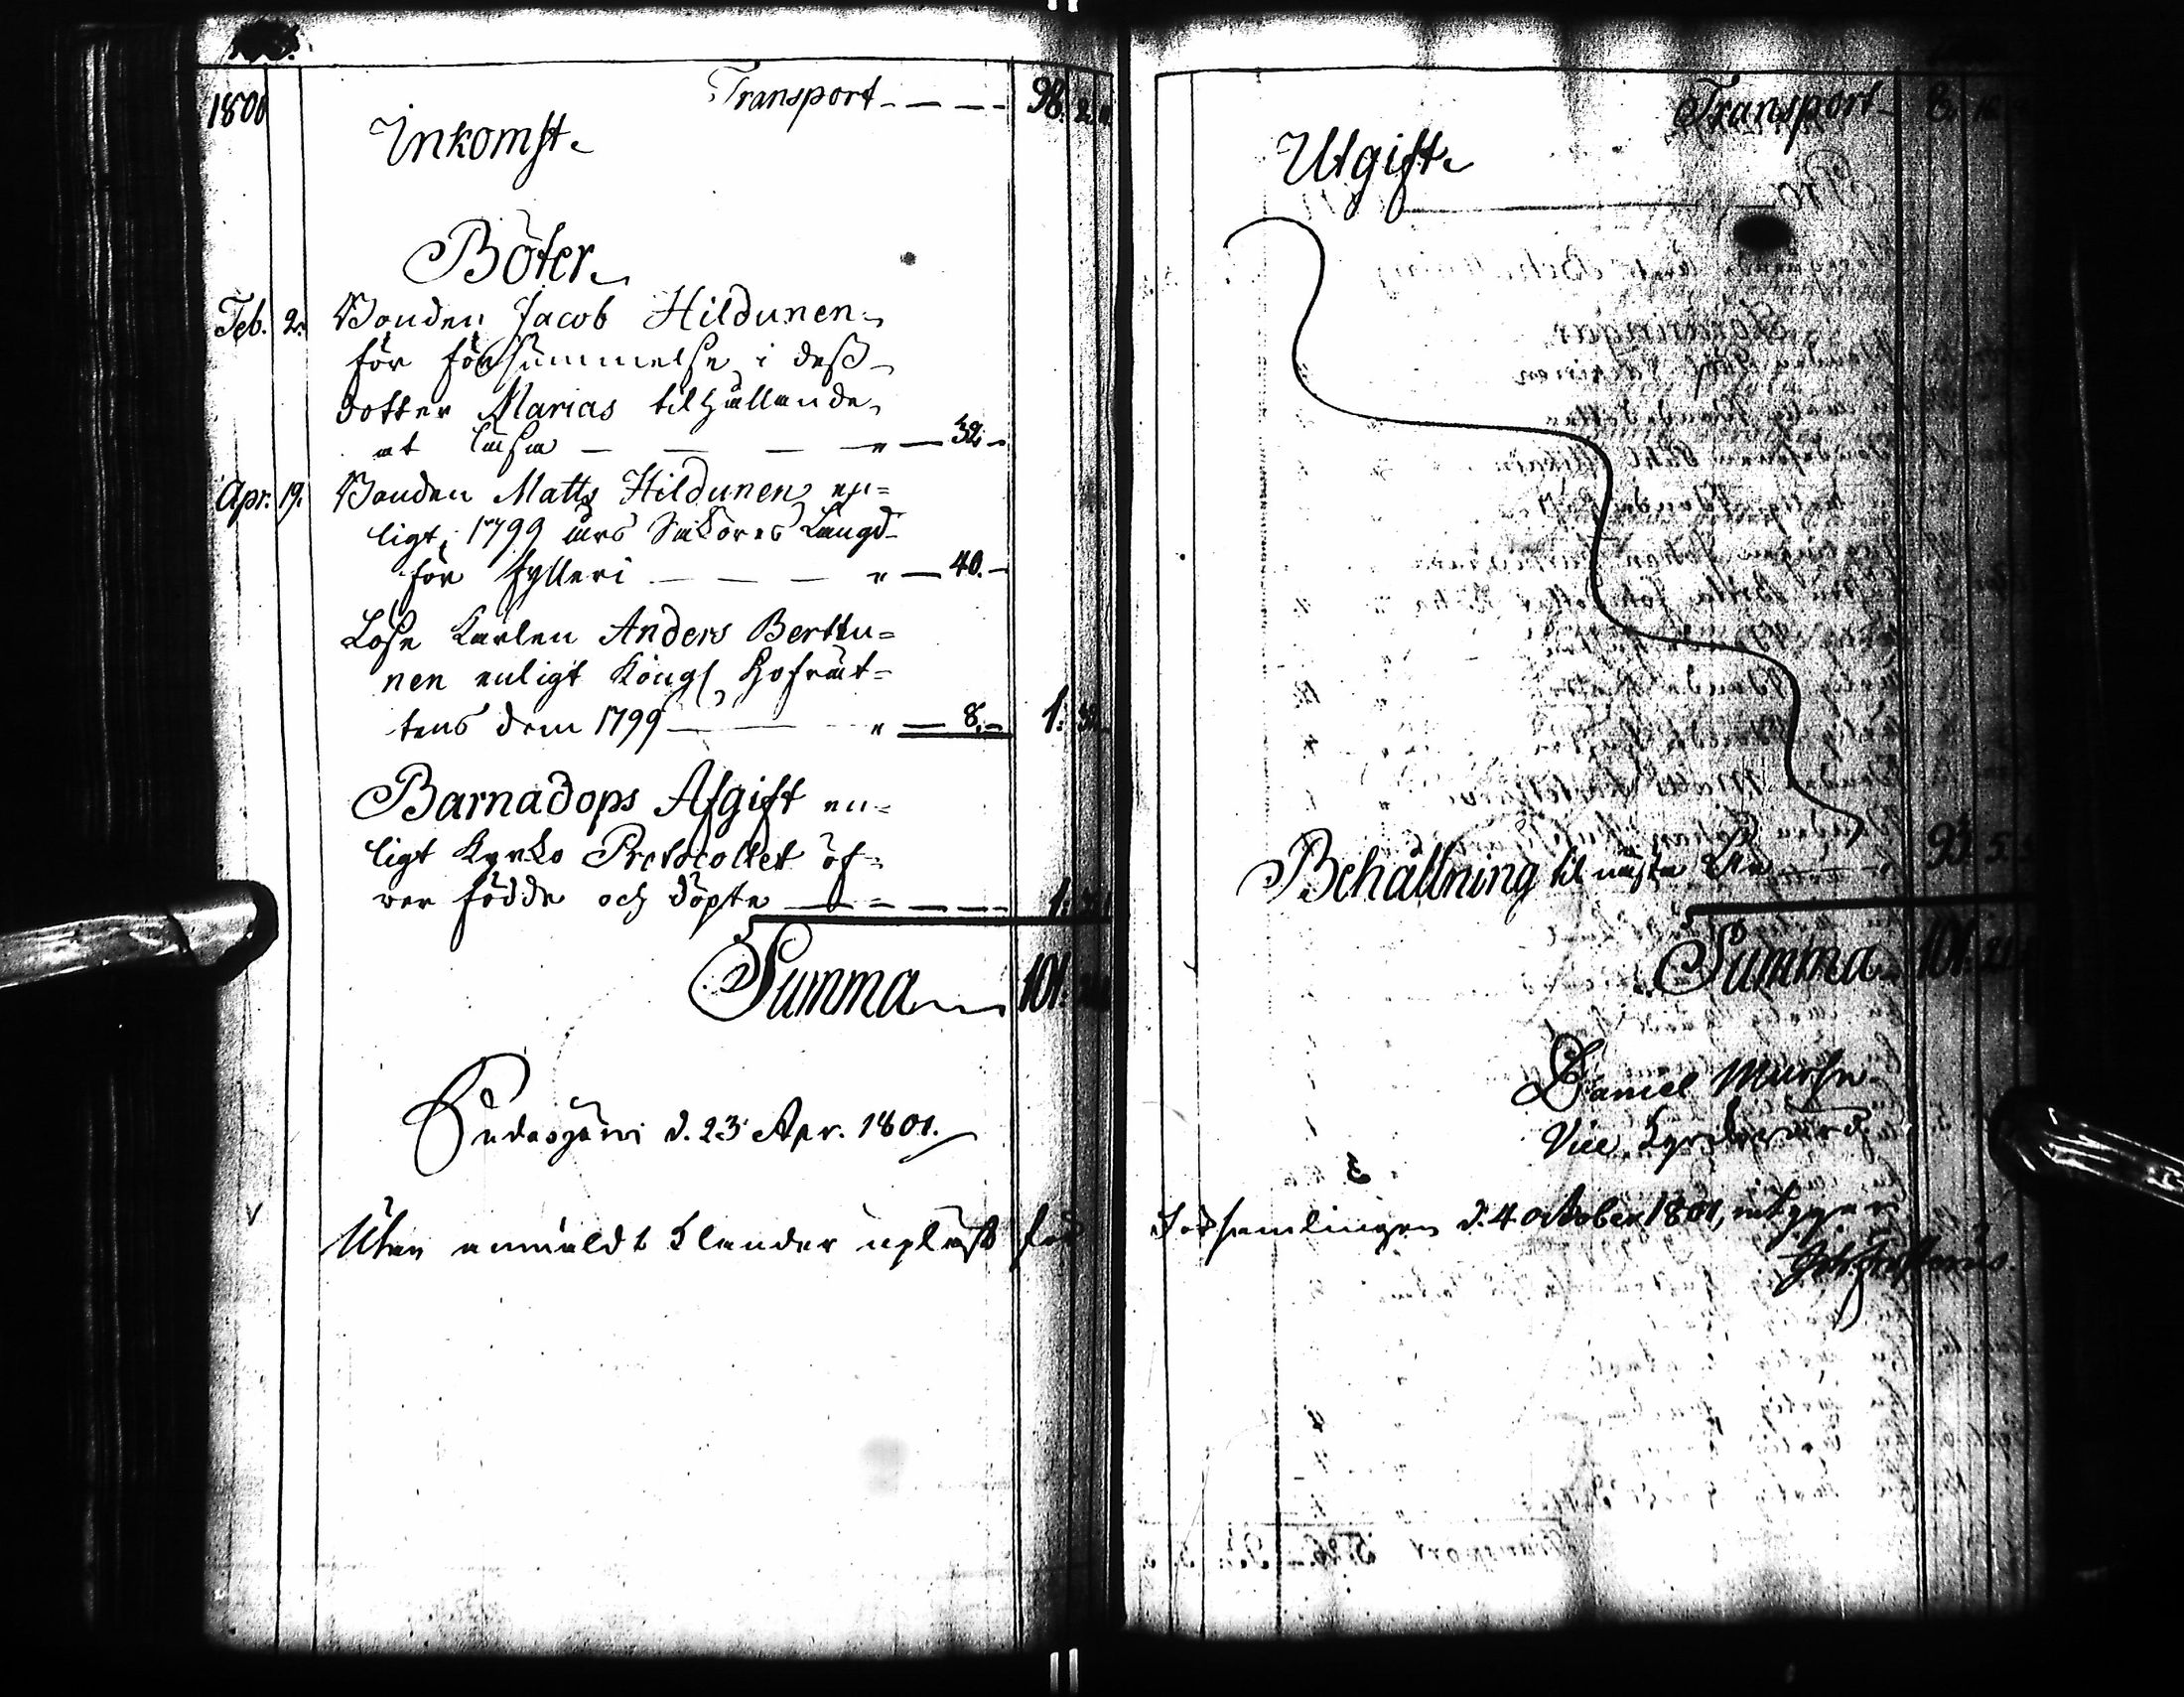 1801
Transport - - - - 98. 2.
Inkomst
Böter
Feb. 2. Bonden Jacob Hildunen
för försummelse i dess
dotter Marias tilhållande
at läsa — — — " — 32 -
Apr. 19. Bonden Matts Hildunen en=
ligt 1799 års Saköres Längd
för fylleri — — — " — 40. -
Löse Karlen Anders Berttu=
nen enligt Kongl. Hofrät=
tens dom 1799 — — " — 8. - 1: 32
Barnadops Afgift en=
ligt Kyrko Protocollet öf=
ver födde och döpte — — — — 1:
Summa 101.
Pudasjärvi d. 23 Apr. 1801.
Utan anmäldt klander upläst för
Transport 8. 16
Utgift
Behållning til nästa År 93. 5.
Summa 101. 21
Daniel
Vice Kyrkovärd
Församlingen d. 4 october 1801, intygar